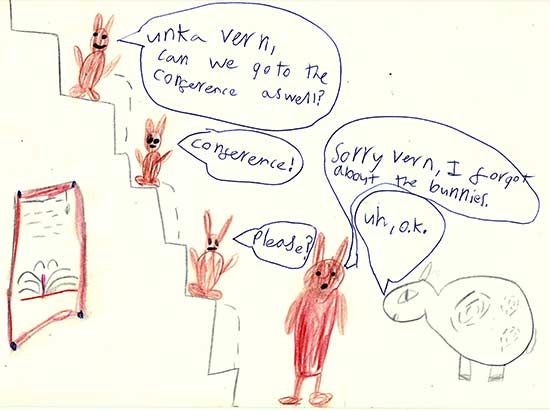 unka vern,
can we go to the
conference aswell?
conference!
please?
Sorry vern, I forgot
about the bunnies.
uh, o.k.